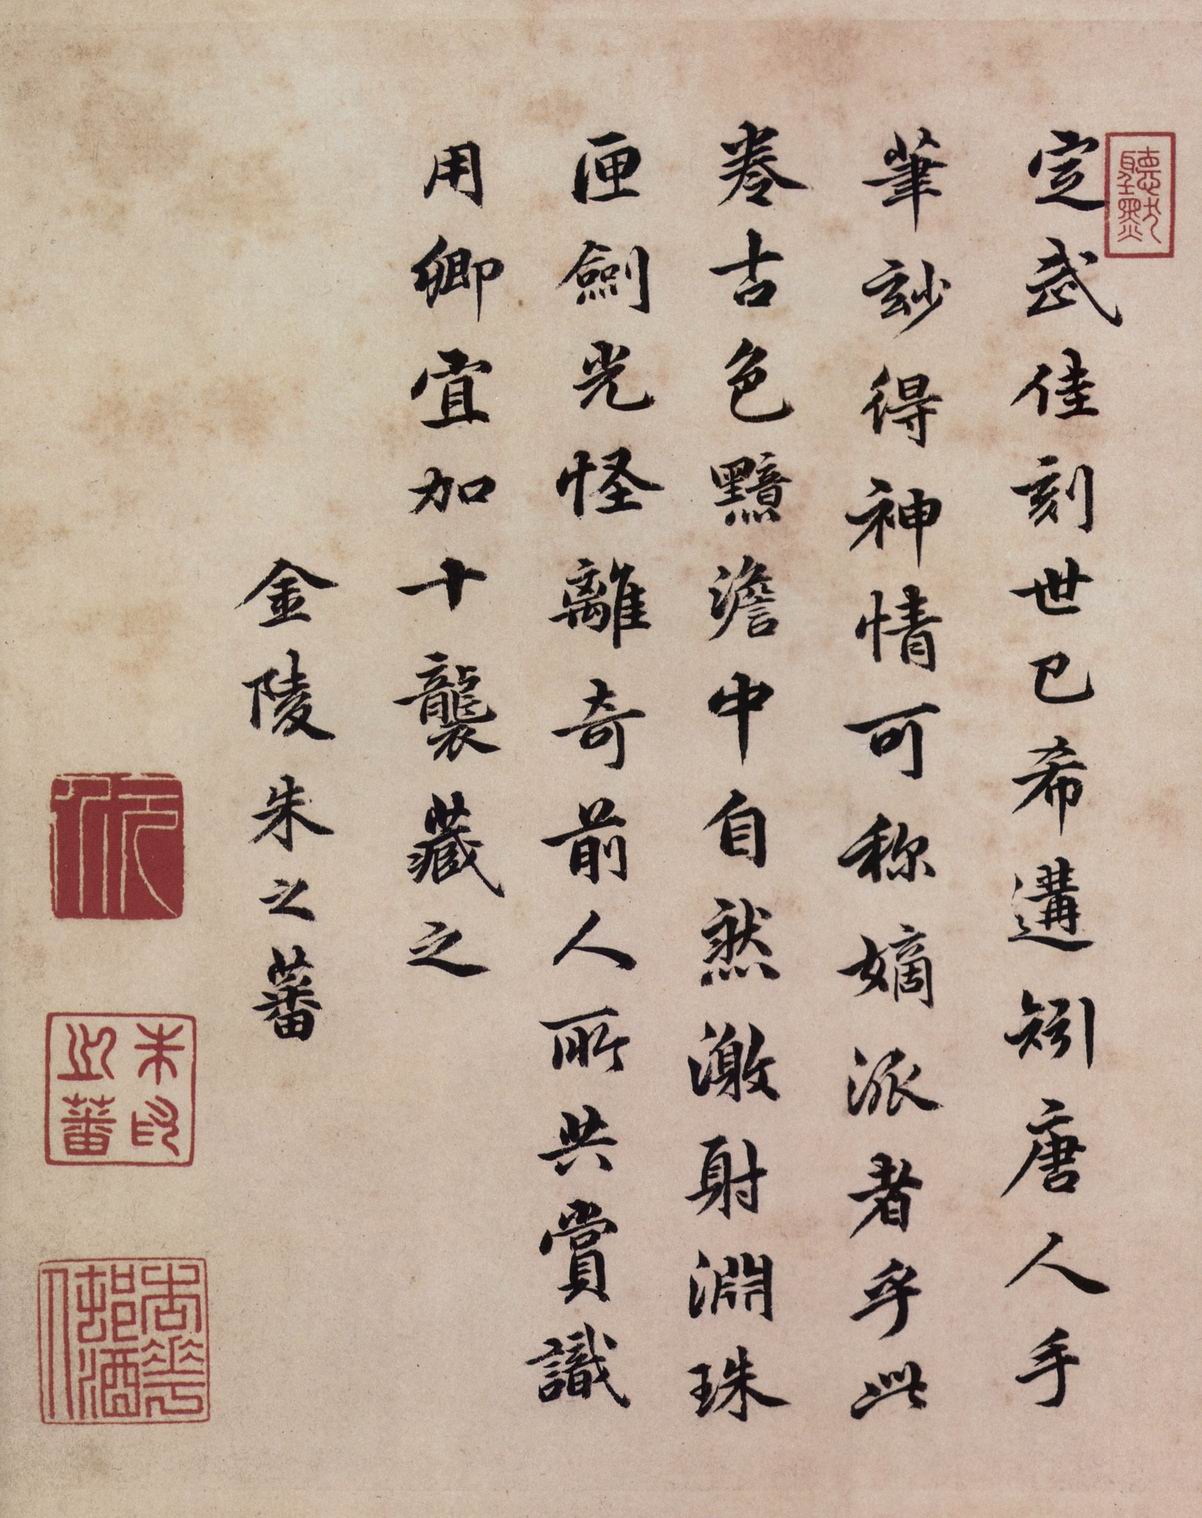 定武佳刻世已希遘矧唐人手
筆玅得神情可称嫡派者乎此
卷古色黯澹中自然激射淵珠
匣劍光怪離奇前人所共賞識
用卿宜加十襲藏之
金陵朱之蕃
朱印之蕃